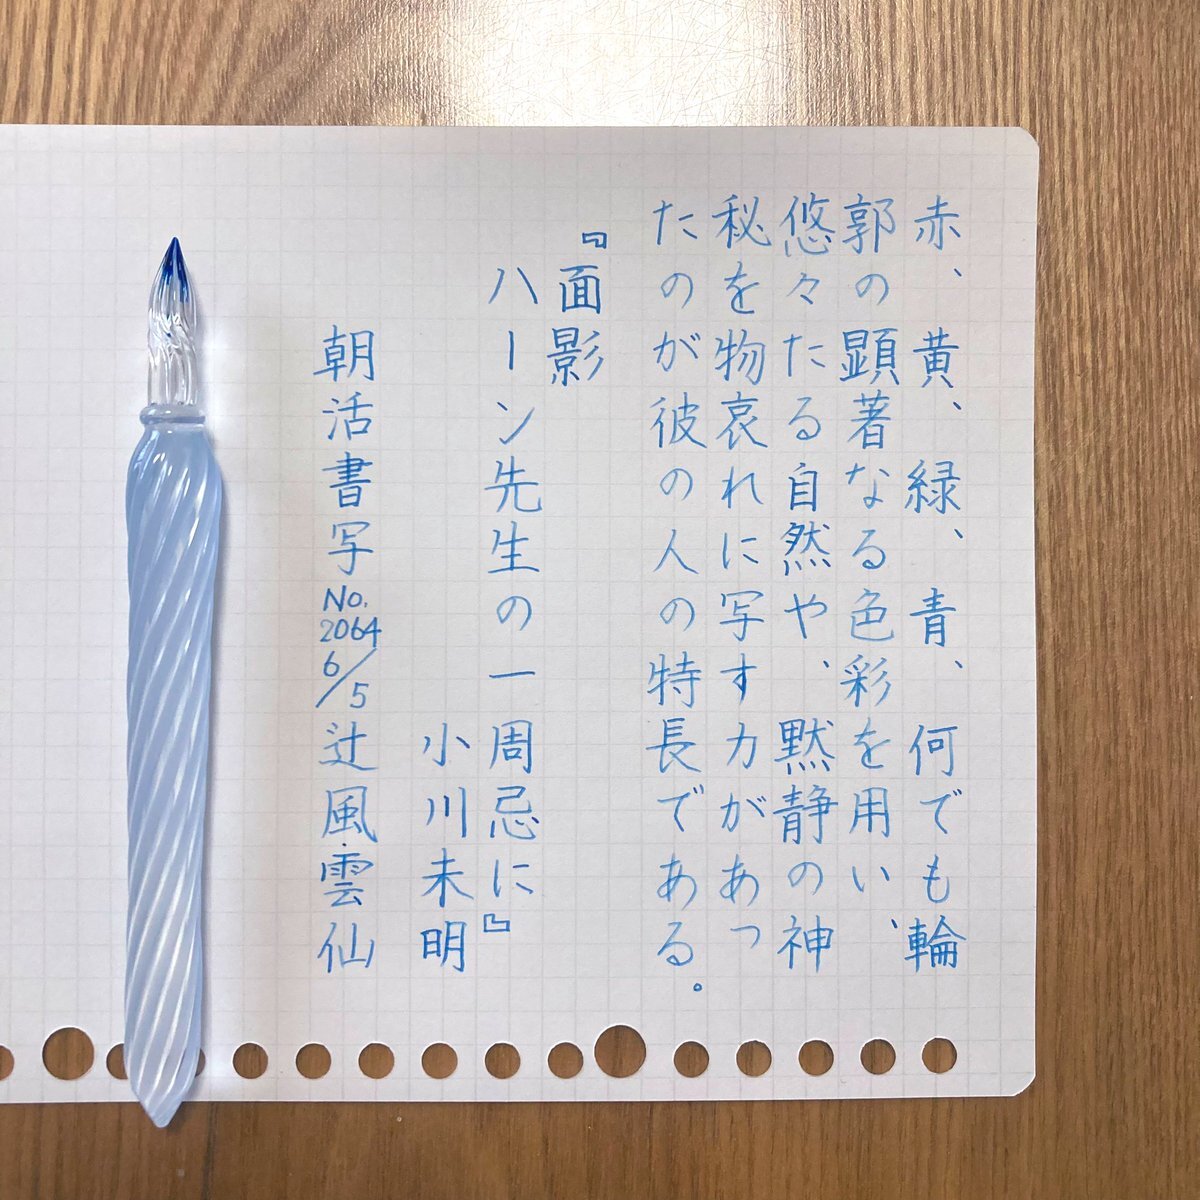 赤、黄、緑、青、何でも輪
郭の顕著なる色彩を用い、
悠々たる自然や、黙静の神
秘を物哀れに写す力があっ
たのが彼の人の特長である。
『面影
ハーン先生の一周忌に』
小川未明
朝活書写No.2064 6/5辻風雲仙